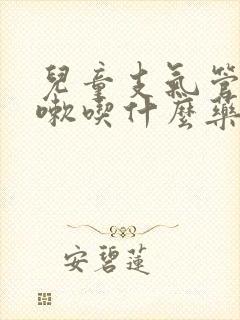 兒童支氣管
嗽喫什麼藥
安碧蓮